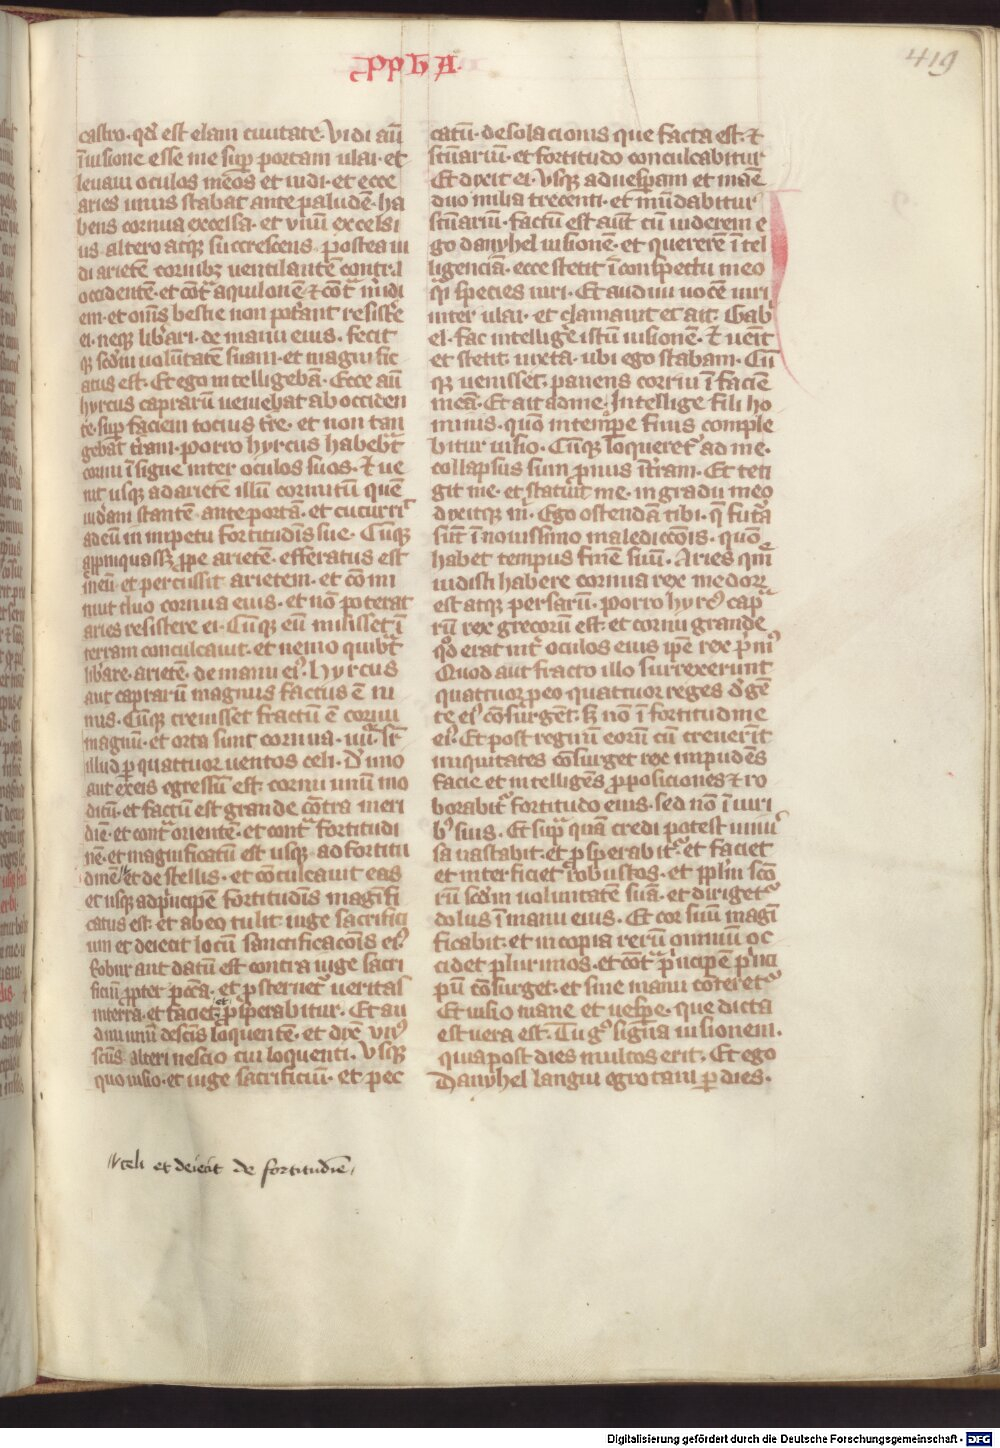 pphA.
419
castro. qd̄ est elam ciuitate. Vidi aū
ī uisione esse me sup̄ portam ulai. et
leuaui oculos meos et uidi. et ecce
aries unus stabat ante paludē. ha
bens cornua excelsa. et unū excelsi
us altero atqꝫ succrescens. postea ui
di arietē cornibꝫ uentilantē contra
occidentē. et cont̄ aquilonē ⁊ cont̄ m̄idi
em. et om̄s bestie non pot̄ant resist̄e
ei. neqꝫ lib̄ari. de manu eius. fecit
qꝫ scd̄m uolūtatē suam. et magnific
atus est. Et ego intelligebā. Ecce aū
hyrcus caprarū ueniebat ab occiden
te. sup faciem tocius t̄re. et non tan
gebat t̄ram. porro hyrcus habebat
cornu īsigne inter oculos suos. ⁊ ue
nit usqꝫ ad arietē illū cornutū quē
uid̄am stantē ante portā. et cucurrit
ad eū in impetu fortitudīs sue. Cūqꝫ
apꝓinquasset ꝓpe arietē. efferatus est
ī eū. et percussit arietem. et cōmi
nuit duo cornua eius. et nō poterat
aries resistere ei. Cūqꝫ eū misisset ī
terram conculcauit. et nemo quibat
lib̄are. arietē. de manu eiꝰ. Hyrcus
aut caprarū magnus factus ē ni
mis. Cūqꝫ creuisset fractū ē cornu
magnū. et orta sunt cornua. iiii. sr̄
illud ꝑ quattuor uentos celi. D' uno
aut ex eis egressū est. cornu unū mo
dicū. et factū est grande cōtra meri
diē. et cont̄ orientē. et cont̄ fortitudi
nē. et magnificatū est usqꝫ ad fortitu
dinē et de stellis. et cōculcauit eas
et usqꝫ ad pͥncipē fortitudīs magnifi
catus est. et ab eo tulit iuge sacrifici
um et deiecit locū sanctificacōis eiꝰ
Robur aut datū est contra iuge sacri
ficiū ꝓpter pc̄ca. et ꝓsternetͬ ueritas
in terra. et faciet. et ꝓsperabitur. Et au
diui unū de sc̄is loquentē. et dix̄ unꝰ
sc̄us alteri nescio cui loquenti. Vsqꝫ
quo uisio. et iuge sacrificiū. et pec
catū. desolacionis que facta est. ⁊
sc̄uariū. et fortitudo conculcabitur
Et dixit ei. Vsqꝫ ad uesp̄am et manē
duo milia trecenti. et mūdabitur
sc̄uariū. factū est aūt cū uiderem e
go danyhel uisionē. et quererē ītel
ligenciā. ecce stetit ī conspectu meo
qͣi species uiri. Et audiui uocē uiri
inter ulai. et clamauit et ait. Gabͥ
el. fac intellige istū uisionē. ⁊ uenit
et stetit iuxta. ubi ego stabam. Cū
qꝫ uenisset. pauens corrui ī faciē
meā. Et ait ad me. Intellige fili ho
minis. quō in temp̄e finis comple
bitur uisio. Cūqꝫ loqueretͬ ad me.
collapsus sum pͬnus ī t̄ram. Et teti
git me. et statuit me. in gradu meo
dixitqꝫ m̄. Ego ostendā tibi. q̄ fut̄a
sūt ī nouissimo malediccōis. quō
habet tempus finē suū. Aries quē
uidisti habere cornua rex medorꝝ
est atqꝫ persarū. porro hyrcꝰ capͣ
rū rex grecorū est. et cornu grande
qd̄ erat int̄ oculos eius ip̄e rex pͥmꝰ
Quod aut fracto illo surrexerunt
quattuor ꝓ eo quattuor reges d' gē
te eiꝰ cōsurgent. sꝫ nō ī fortitudine
eiꝰ. Et post regnū eorū cū creuerīt
iniquitates cōsurget rex impudēs
facie et intelligēs ꝓposiciones ⁊ ro
borabitͬ fortitudo eius. sed nō ī uiri
bꝰ suis. Et supͣ quā credi potest uniuͬ
sa uastabit. et ꝓsperabitͬ. et faciet
et interficiet robustos. et pplm sc̄o
rū scd̄m uoluntatē suā. et dirigetͬ
dolus ī manu eius. Et cor suū magī
ficabit. et in copia rerū omniū oc
cidet plurimos. et cont̄ pͥncipē pͥnci
pū cōsurget. et sine manu cōteretͬ
Et uisio mane et uesp̄e. que dicta
est uera est. Tu gͦ signa uisionem.
quia post dies multos erit. Et ego
Danyhel langui egrotaui ꝑ dies.
celi et deiecit de fortitudīe
Digitalisierung gefördert durch die Deutsche Forschungsgemeinschaft - DFG